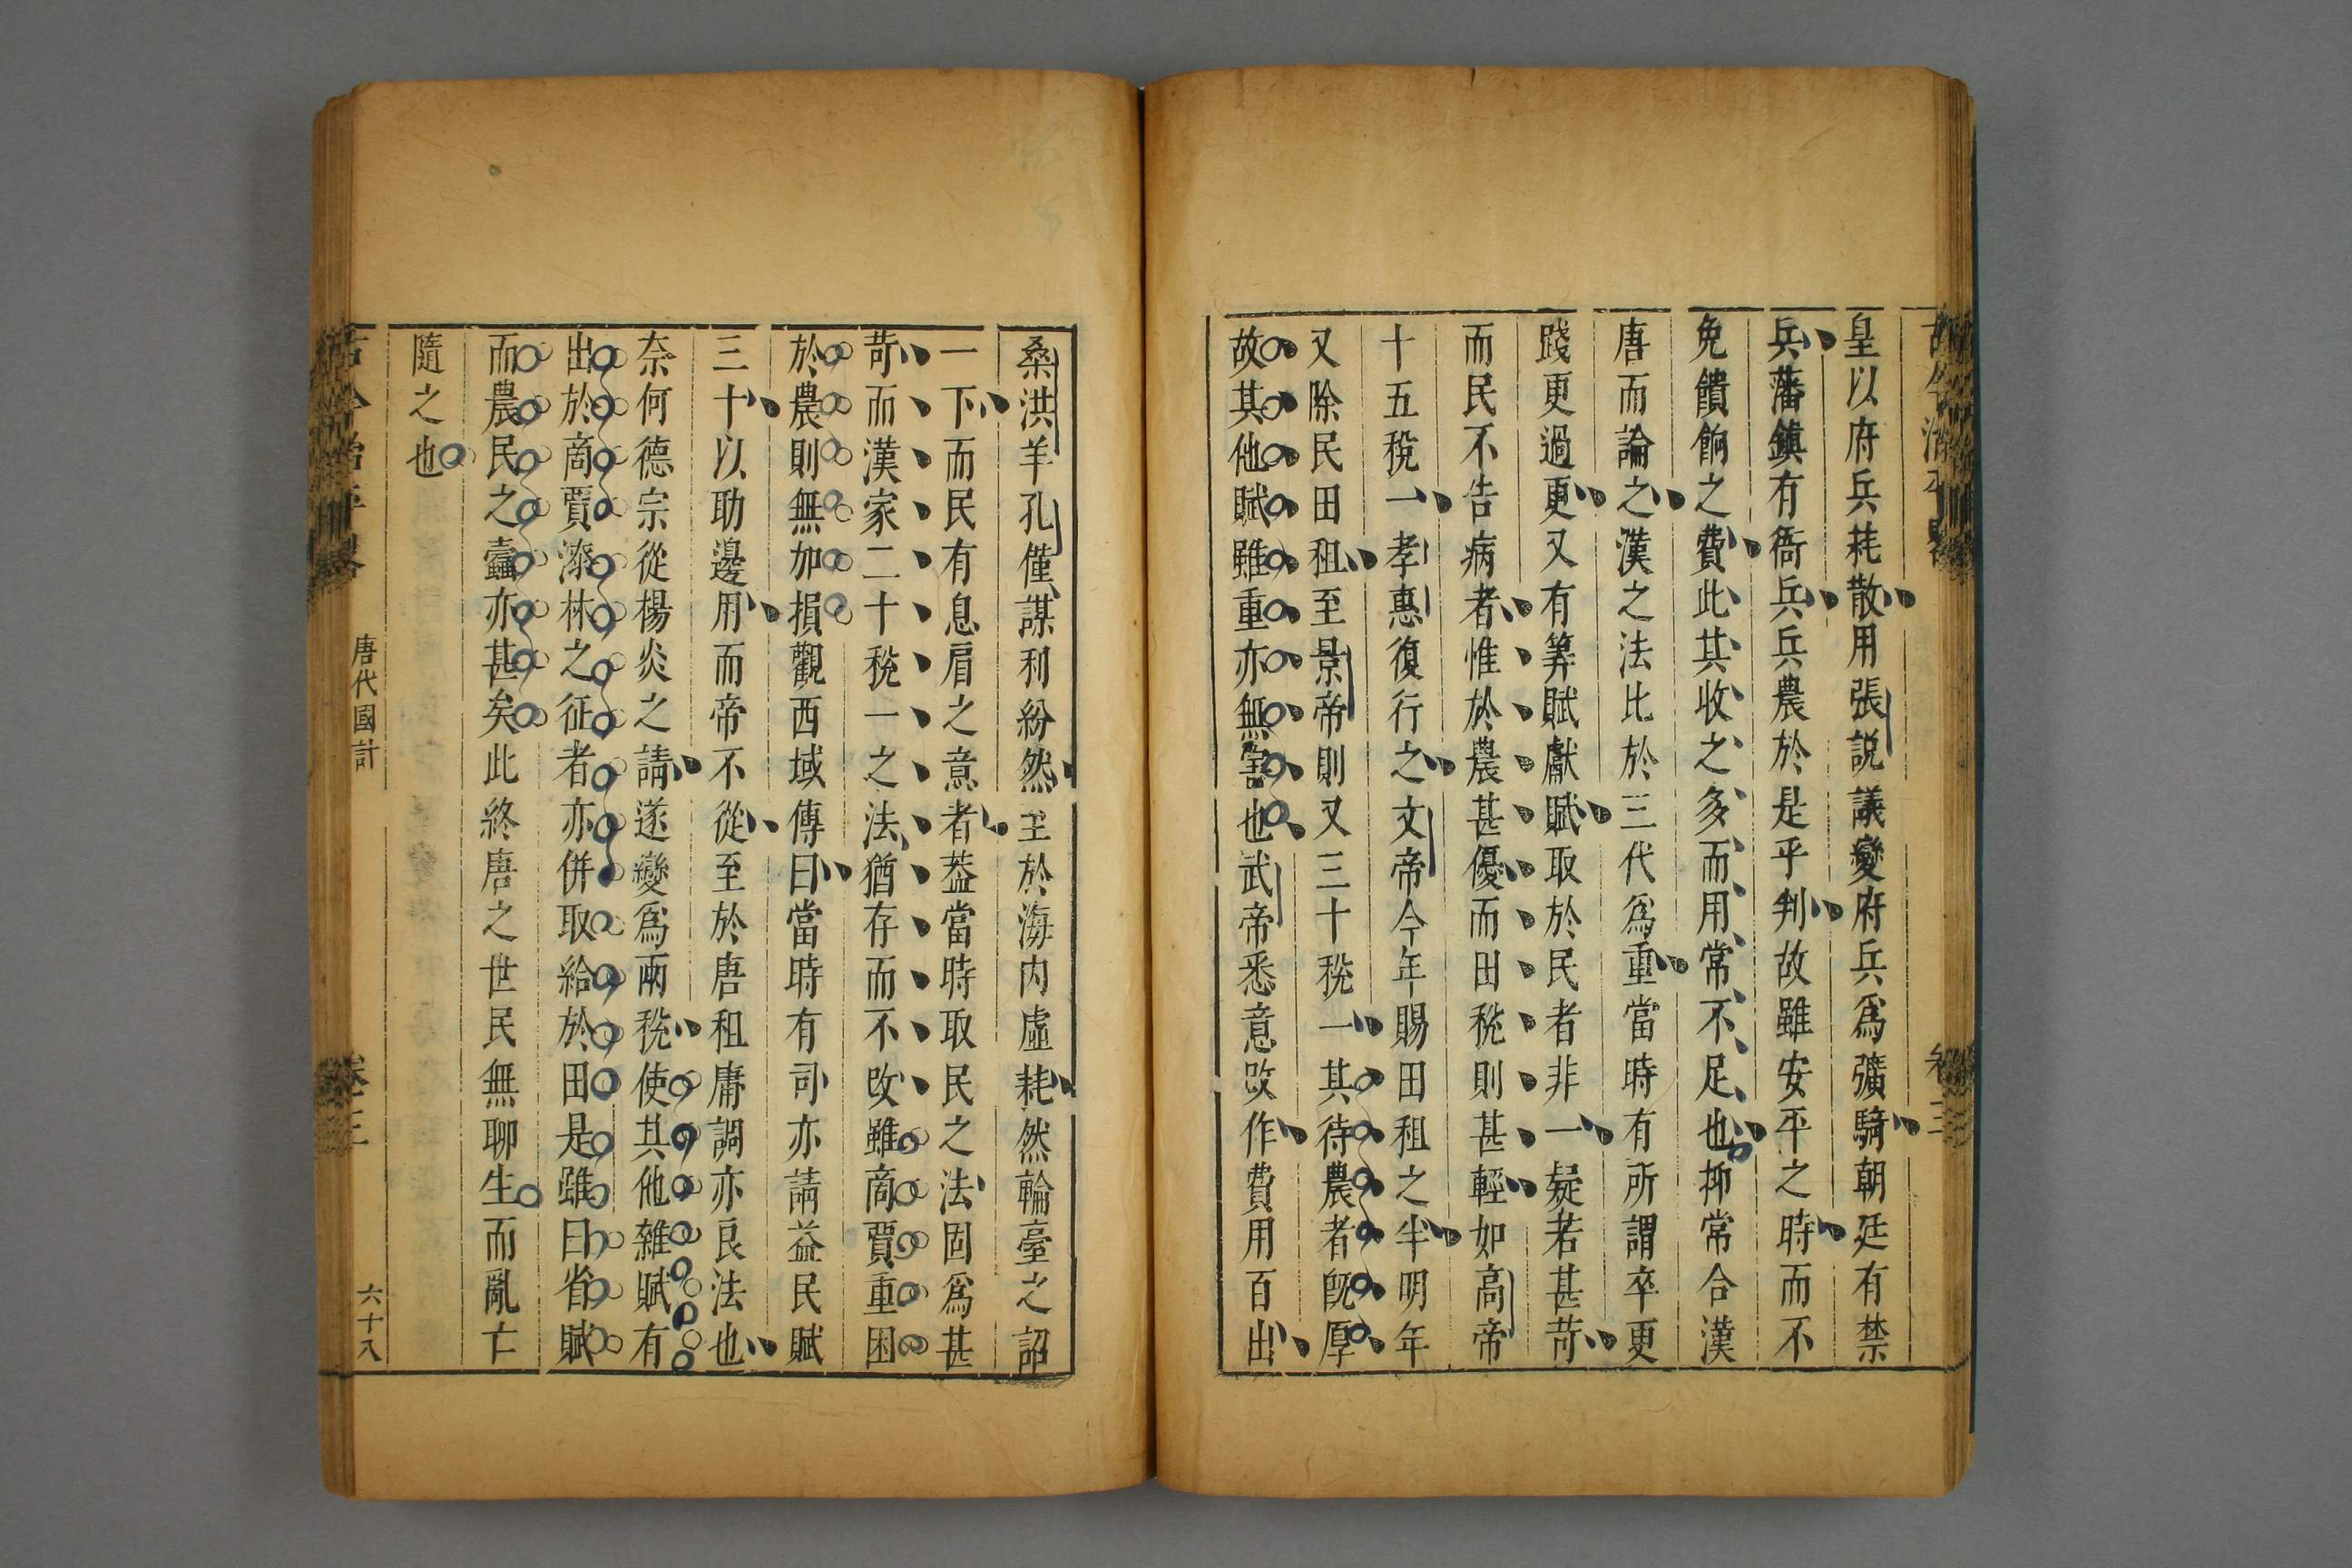 皇以府兵耗散用張說議變府兵爲彍騎朝廷有禁
兵藩鎮有衙兵兵農於是乎判故雖安平之時而不
免饋餉之費此其收之多而用常不足也抑常合漢
唐而論之漢之法比於三代爲重當時有所謂卒更
踐更過更又有筭賦獻賦取於民者非一疑若甚苛
而民不告病者惟於農甚優而田稅則甚輕如高帝
十五稅一孝惠復行之文帝今年賜田租之半明年
又除民田租至景帝則又三十稅一其待農者旣厚
故其他賦雖重亦無害也武帝悉意改作費用百出
桑洪羊孔僅謀利紛然至於海内虛耗然輪臺之詔
一下而民有息肩之意者葢當時取民之法固爲甚
苛而漢家二十稅一之法猶存而不改雖商賈重困
於農則無加損觀西域傳曰當時有司亦請益民賦
三十以助邊用而帝不從至於唐租庸調亦良法也
奈何德宗從楊炎之請遂變爲兩稅使其他雜賦有
出於商賈漆林之征者亦併取給於田是雖曰省賦
而農民之蠹亦甚矣此終唐之世民無聊生而亂亡
隨之也
唐代國計
卷三
六十八